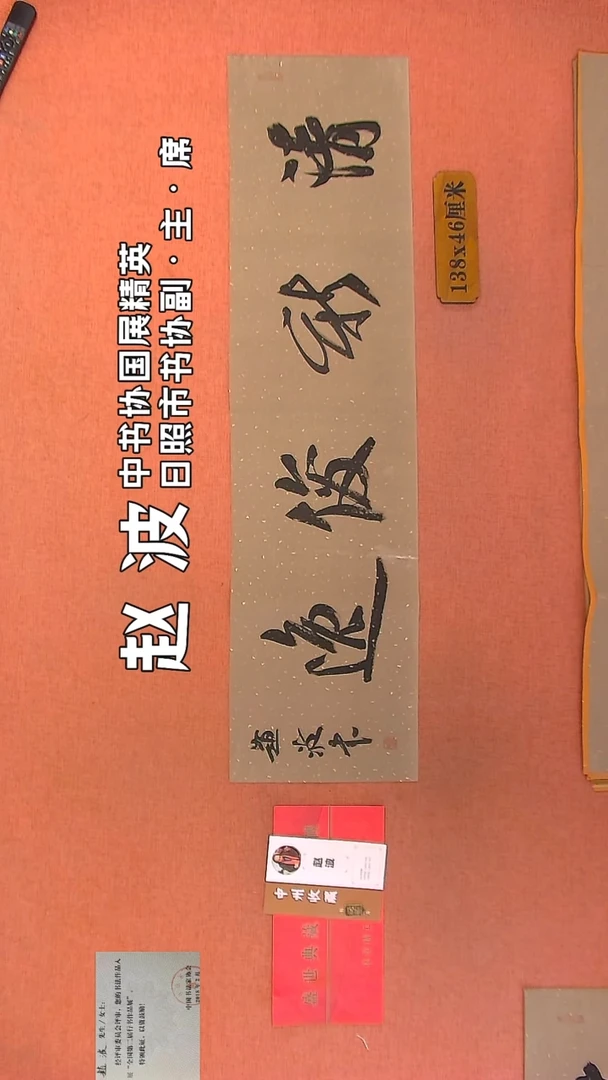 赵波
中书协国展精英
日照市书协副·主·席
清新俊逸
趙波书
138x46厘米
赵波
中州收藏
盛世典藏
赵波 先生/女士:
经评审委员会评审，您的书法作品入
展“全国第二届行书作品展”，
特颁此证，以资鼓励！
中国书法家协会